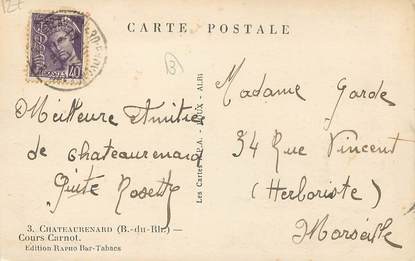 127
CARTE POSTALE
40
B
Meilleure Amitié
de Chateaurenard
Rosette
Madame Garde
34 Rue Vincent
(Herboriste)
Marseille
Les Cartes A.P.A. - POUX - ALBI
3. CHATEAURENARD (B.-du-Rh.) —
Cours Carnot.
Edition RAPHO Bar-Tabacs